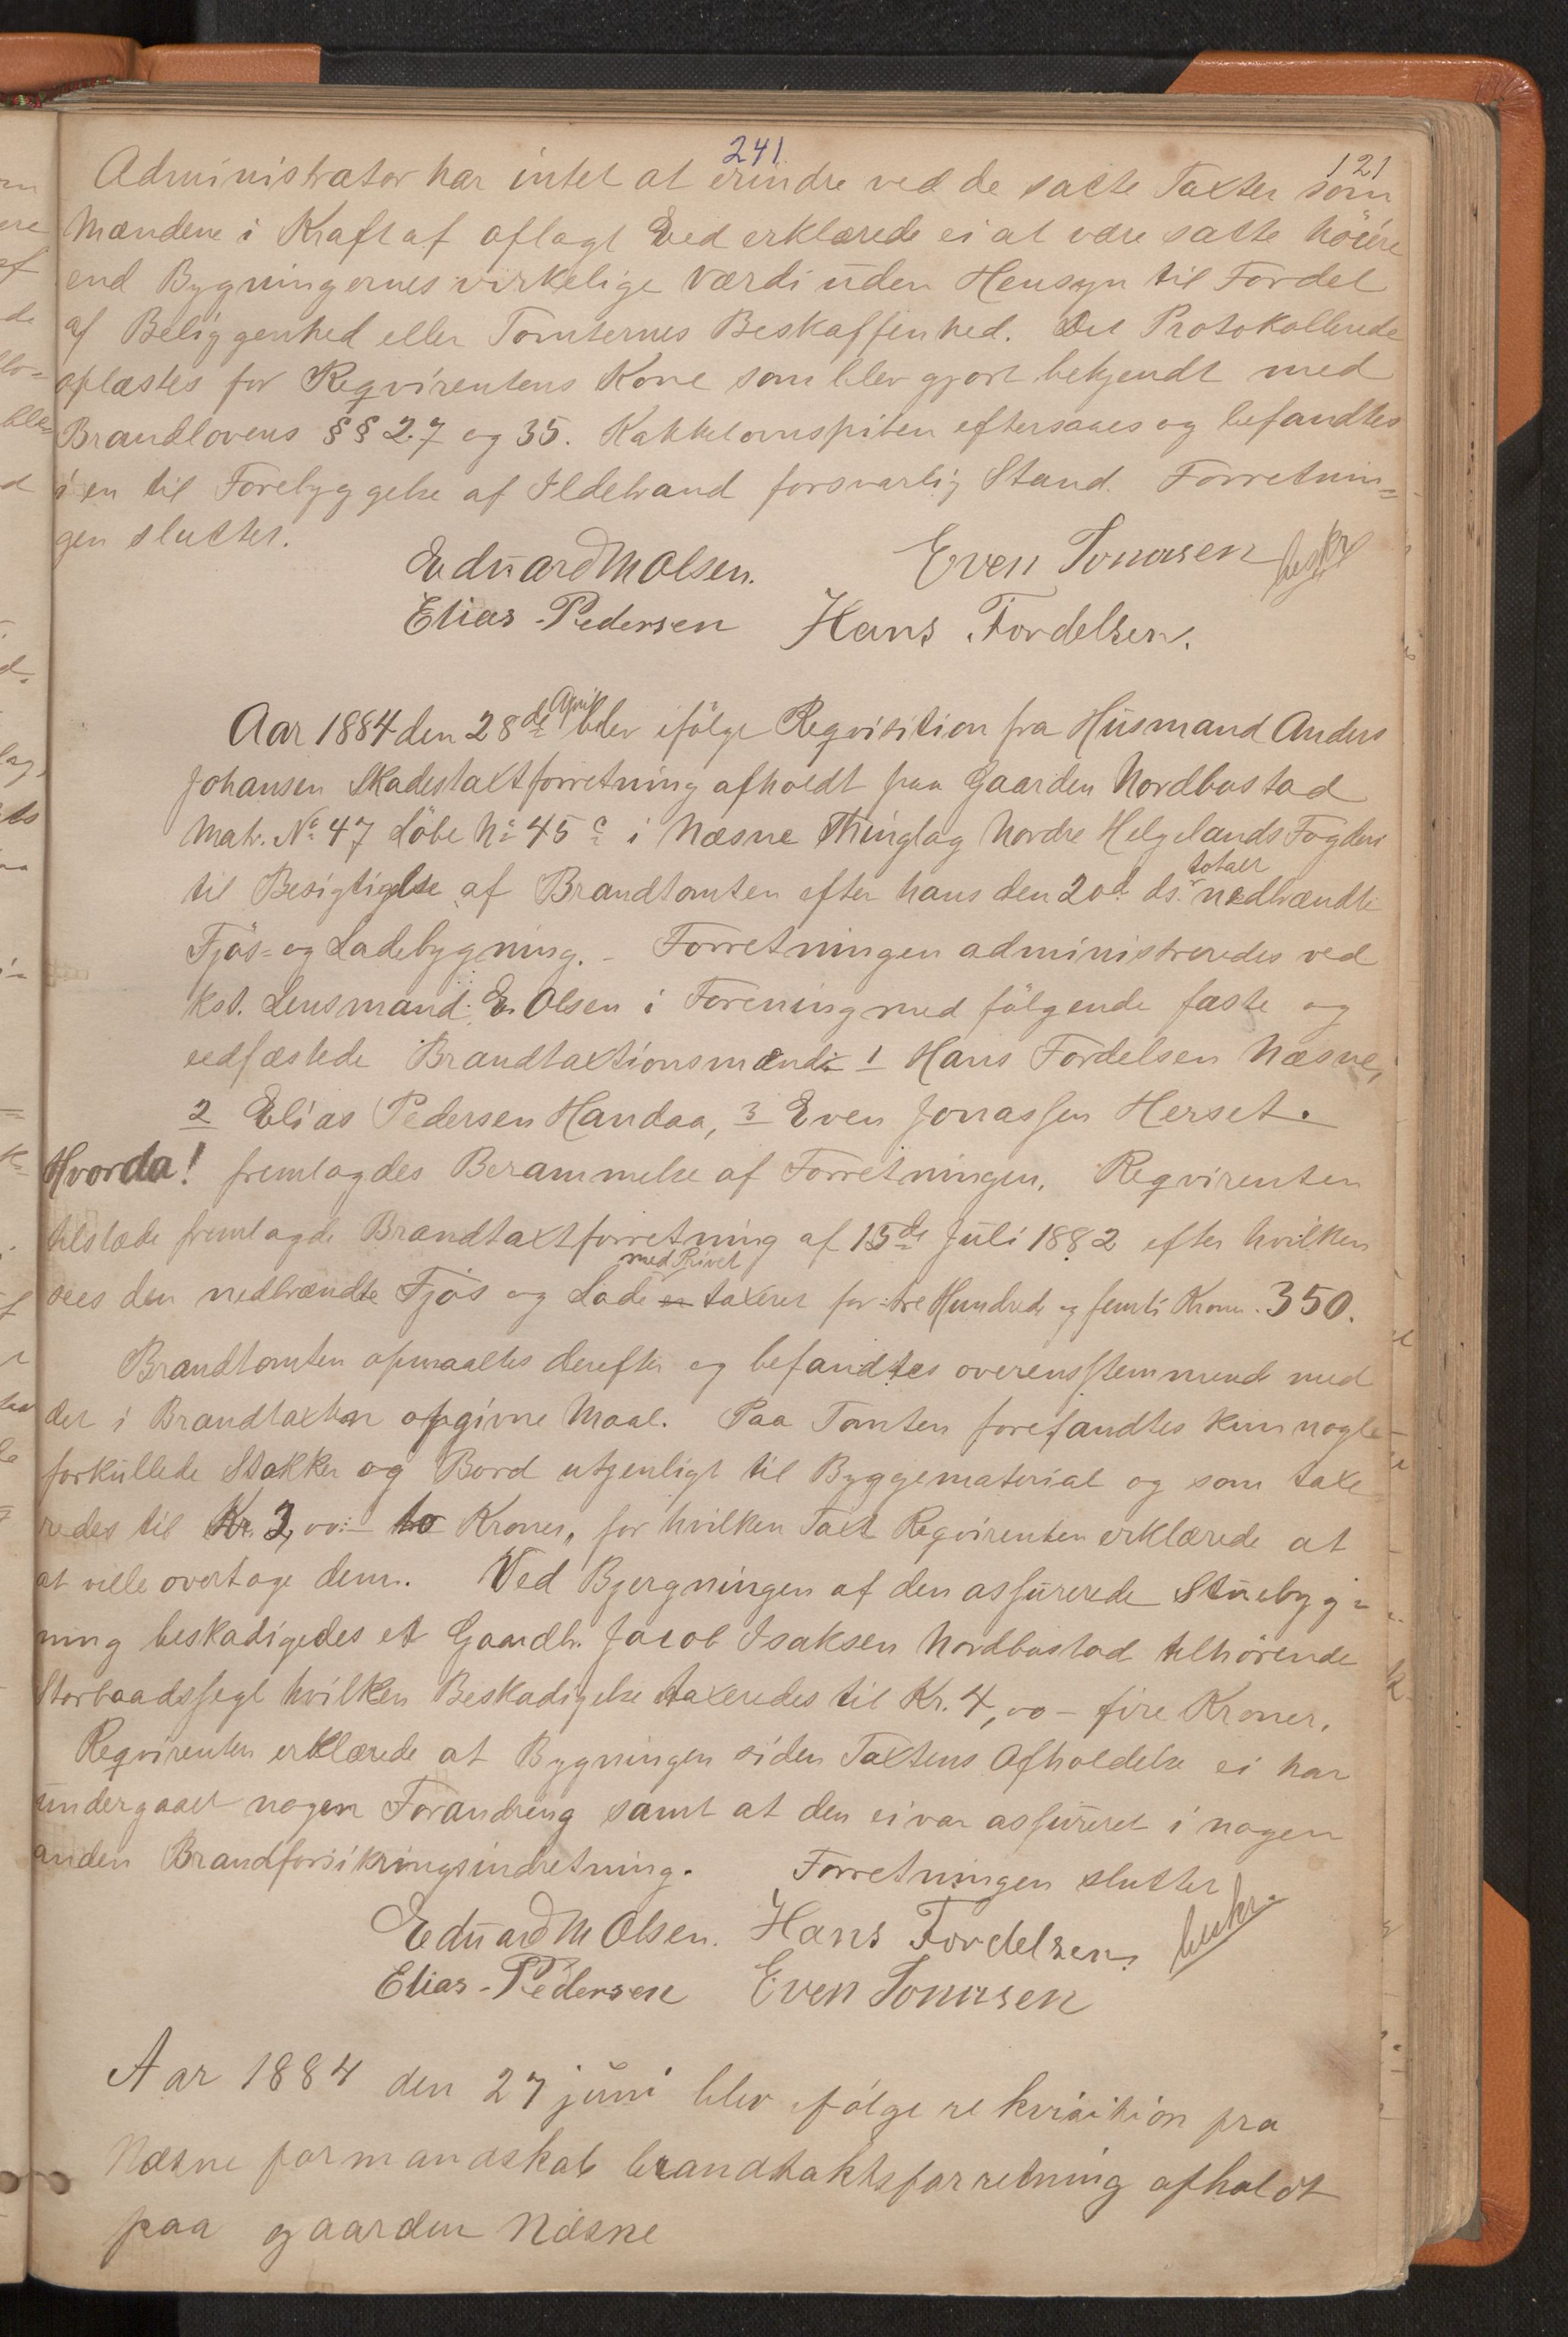 241.
121
Administrator har intet at erindre ved de satte Taxter som
Mændene i Kraft af aflagt Eed erklærede ei at være satte höiere
end Bygningernes virkelige Værdi uden Hensyn til Fordel
af Beliggenhed eller Tomternes Beskaffenhed. Det Protokollerede
oplæstes for Reqvirentens Kone som blev gjort bekjendt med
Brandlovens §§ 27 og 35. Kakkelovnspiben eftersaaes og befandtes
i en til Forebyggelse af Ildebrand forsvarlig Stand. Forretnin=
gen sluttet.
Eduard M Olsen. Even Jonasen beskr
Elias Pedersen Hans Fordelsen.
Aar 1884 den 28de April blev ifölge Reqvisition fra Husmand Anders
Johansen Skadestaxtforretning afholdt paa Gaarden Nordbostad
Matr. No 47 Löbe No 45 c i Næsne Thinglag Nordre Helgelands Fogderi
til Besigtigelse af Brandtomten efter hans den 20d. ds. totalt nedbrændte
Fjös= og Ladebygning. - Forretningen administreredes ved
kst. Lensmand E. Olsen i Forening med fölgende faste og
eedfæstede Brandtaxtionsmænd: 1 Hans Fordelsen Næsne,
2 Elias Pedersen Handaa, 3 Even Jonassen Herset.
Hvorda! fremlagdes Berammelse af Forretningen. Reqvirenten
tilstæde fremlagde Brandtaxtforretning af 15de Juli 1882 efter hvilken
sees den nedbrændte Fjös og Lade med Rivet er taxeret for tre Hundrede og femti Kroner. 350.
Brandtomten opmaaltes derefter og befandtes overensstemmende med
det i Brandtaxten opgivne Maal. Paa Tomten forefandtes kun nogle
forkullede Stokker og Bord utjenligt til Byggematerial og som taxe
redes til Kr. 2,00 - to Kroner, for hvilken Taxt Reqvirenten erklærede at
at ville overtage dem. Ved Bjergningen af den assurerede Stuebyg=
ning beskadigedes et Gaardbr. Jacob Isaksen Nordbostad tilhörende
Storbaadssegl hvilken Beskadigelse taxeredes til Kr. 4,00 - fire Kroner.
Reqvirenten erklærede at Bygningen siden Taxtens Afholdelse ei har
undergaaet nogen Forandring samt at den ei var assureret i nogen
anden Brandforsikringsindretning. Forretningen sluttet
Eduard M Olsen. Hans Fordelsen. beskr.
Elias Pedersen Even Jonasen
Aar 1884 den 27 juni blev ifölge rekvisition fra
Næsne formandskab brandtakstsforretning afholdt
paa gaarden Næsne